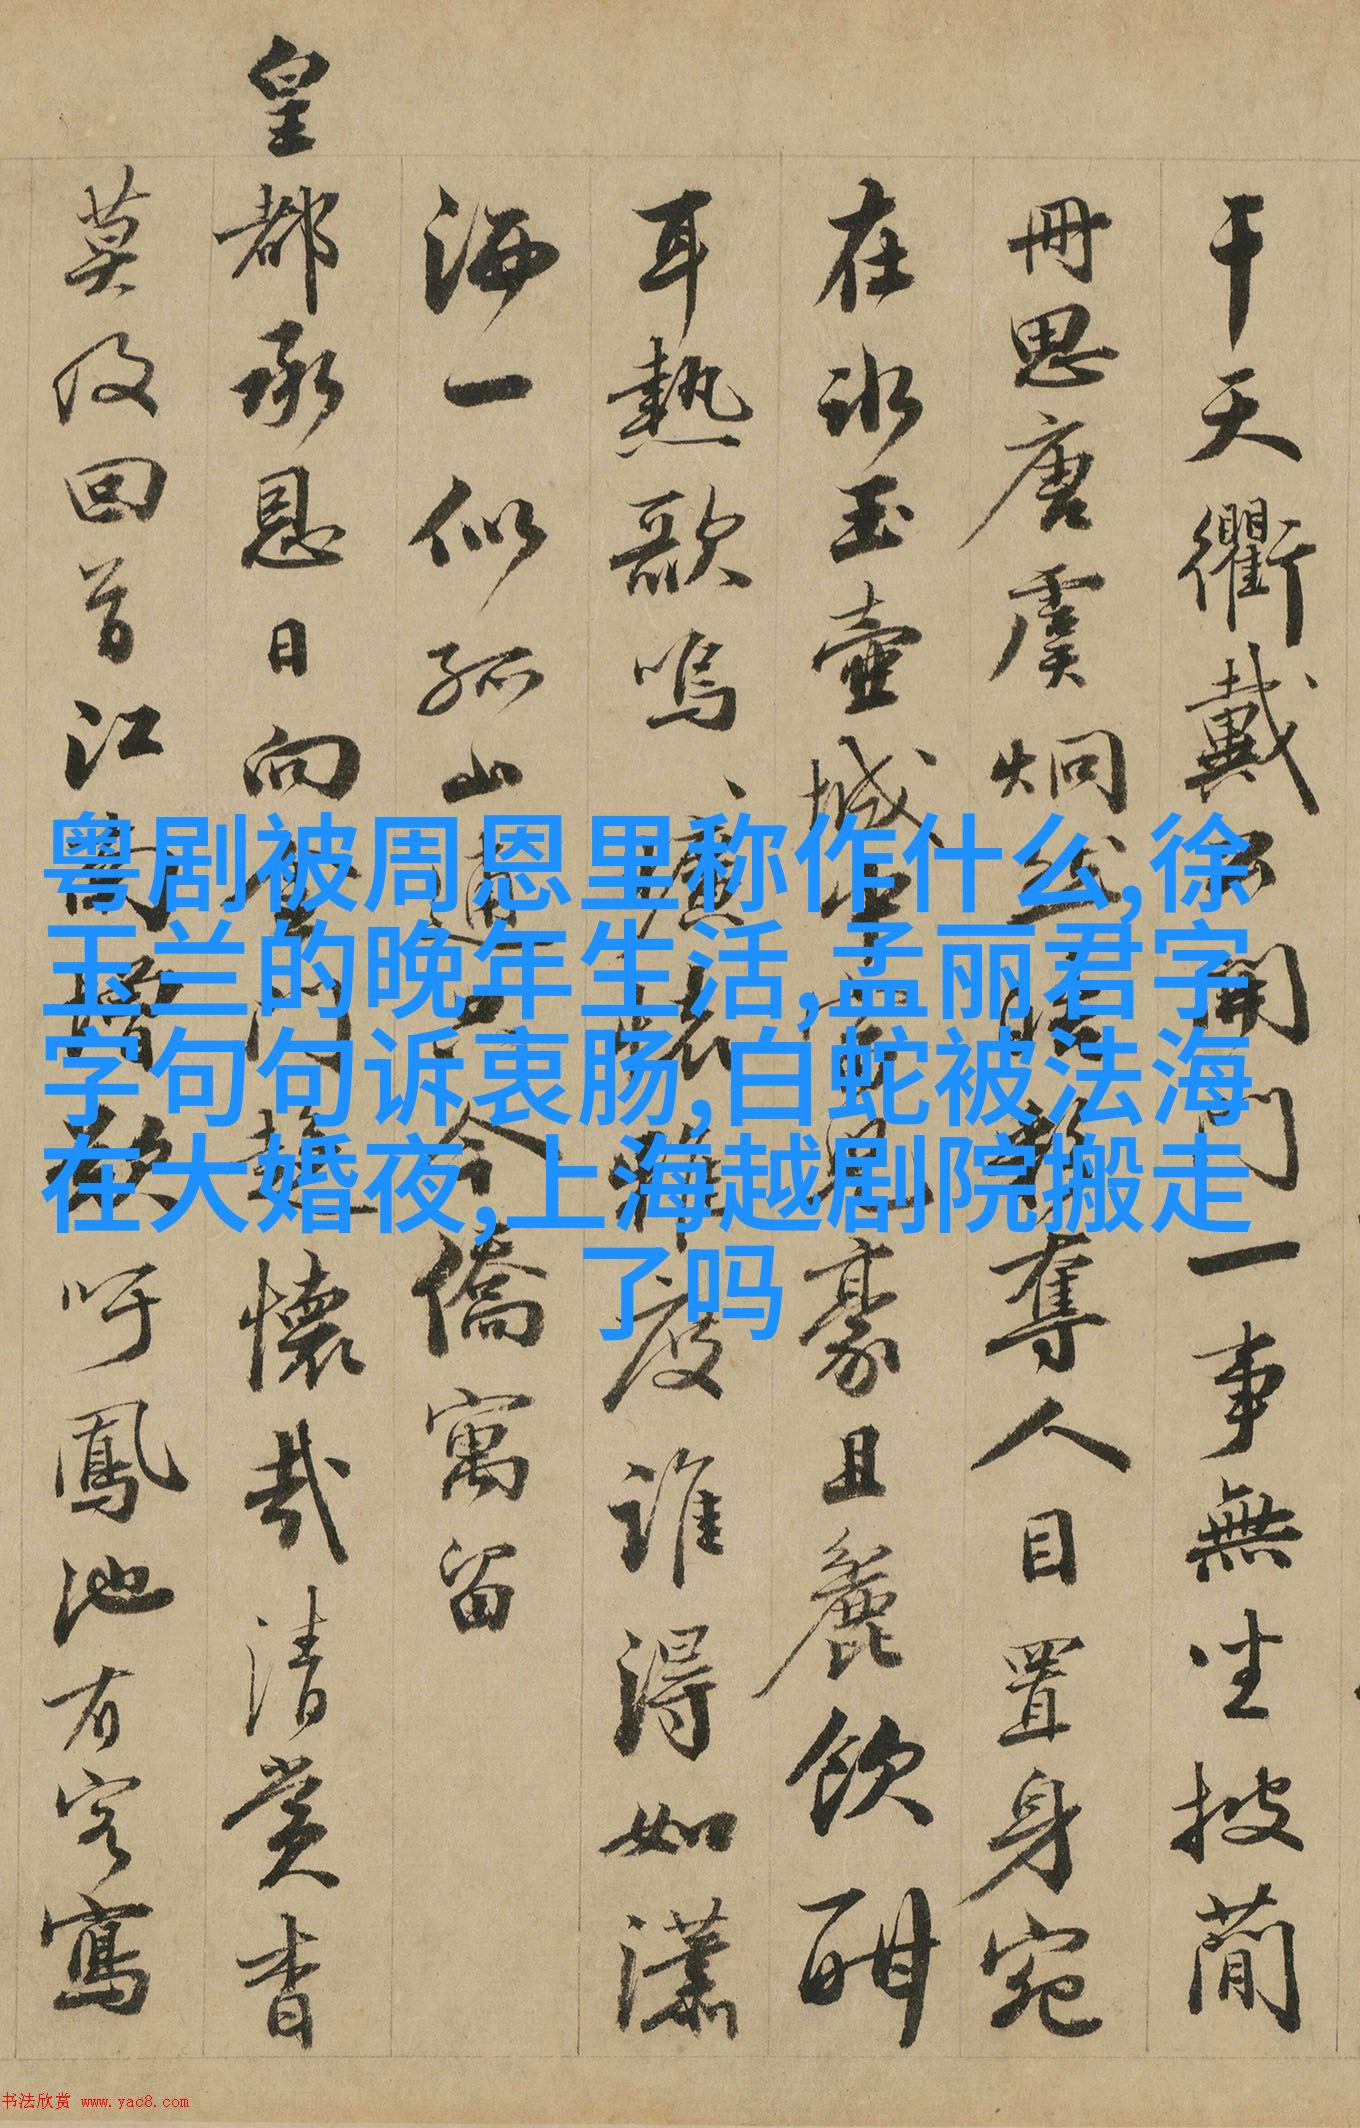 干天衢戴
開門一事無坐披蕑
冊思唐虞炯
奪人目置身宛
在冰玉壺城
豪且麄飲酣
耳熱歌嗚
度誰得如瀟
海一似孤山
今僑寓留
皇都承恩日向
趨懷哉清赏杳
莫及回首江
吁鳳池有客寫
粤剧被周恩里称作什么,徐
玉兰的晚年生活,孟丽君字
字句句诉衷肠,白蛇被法海
在大婚夜,上海越剧院搬走
了吗
书法欣赏 www.yac8.com